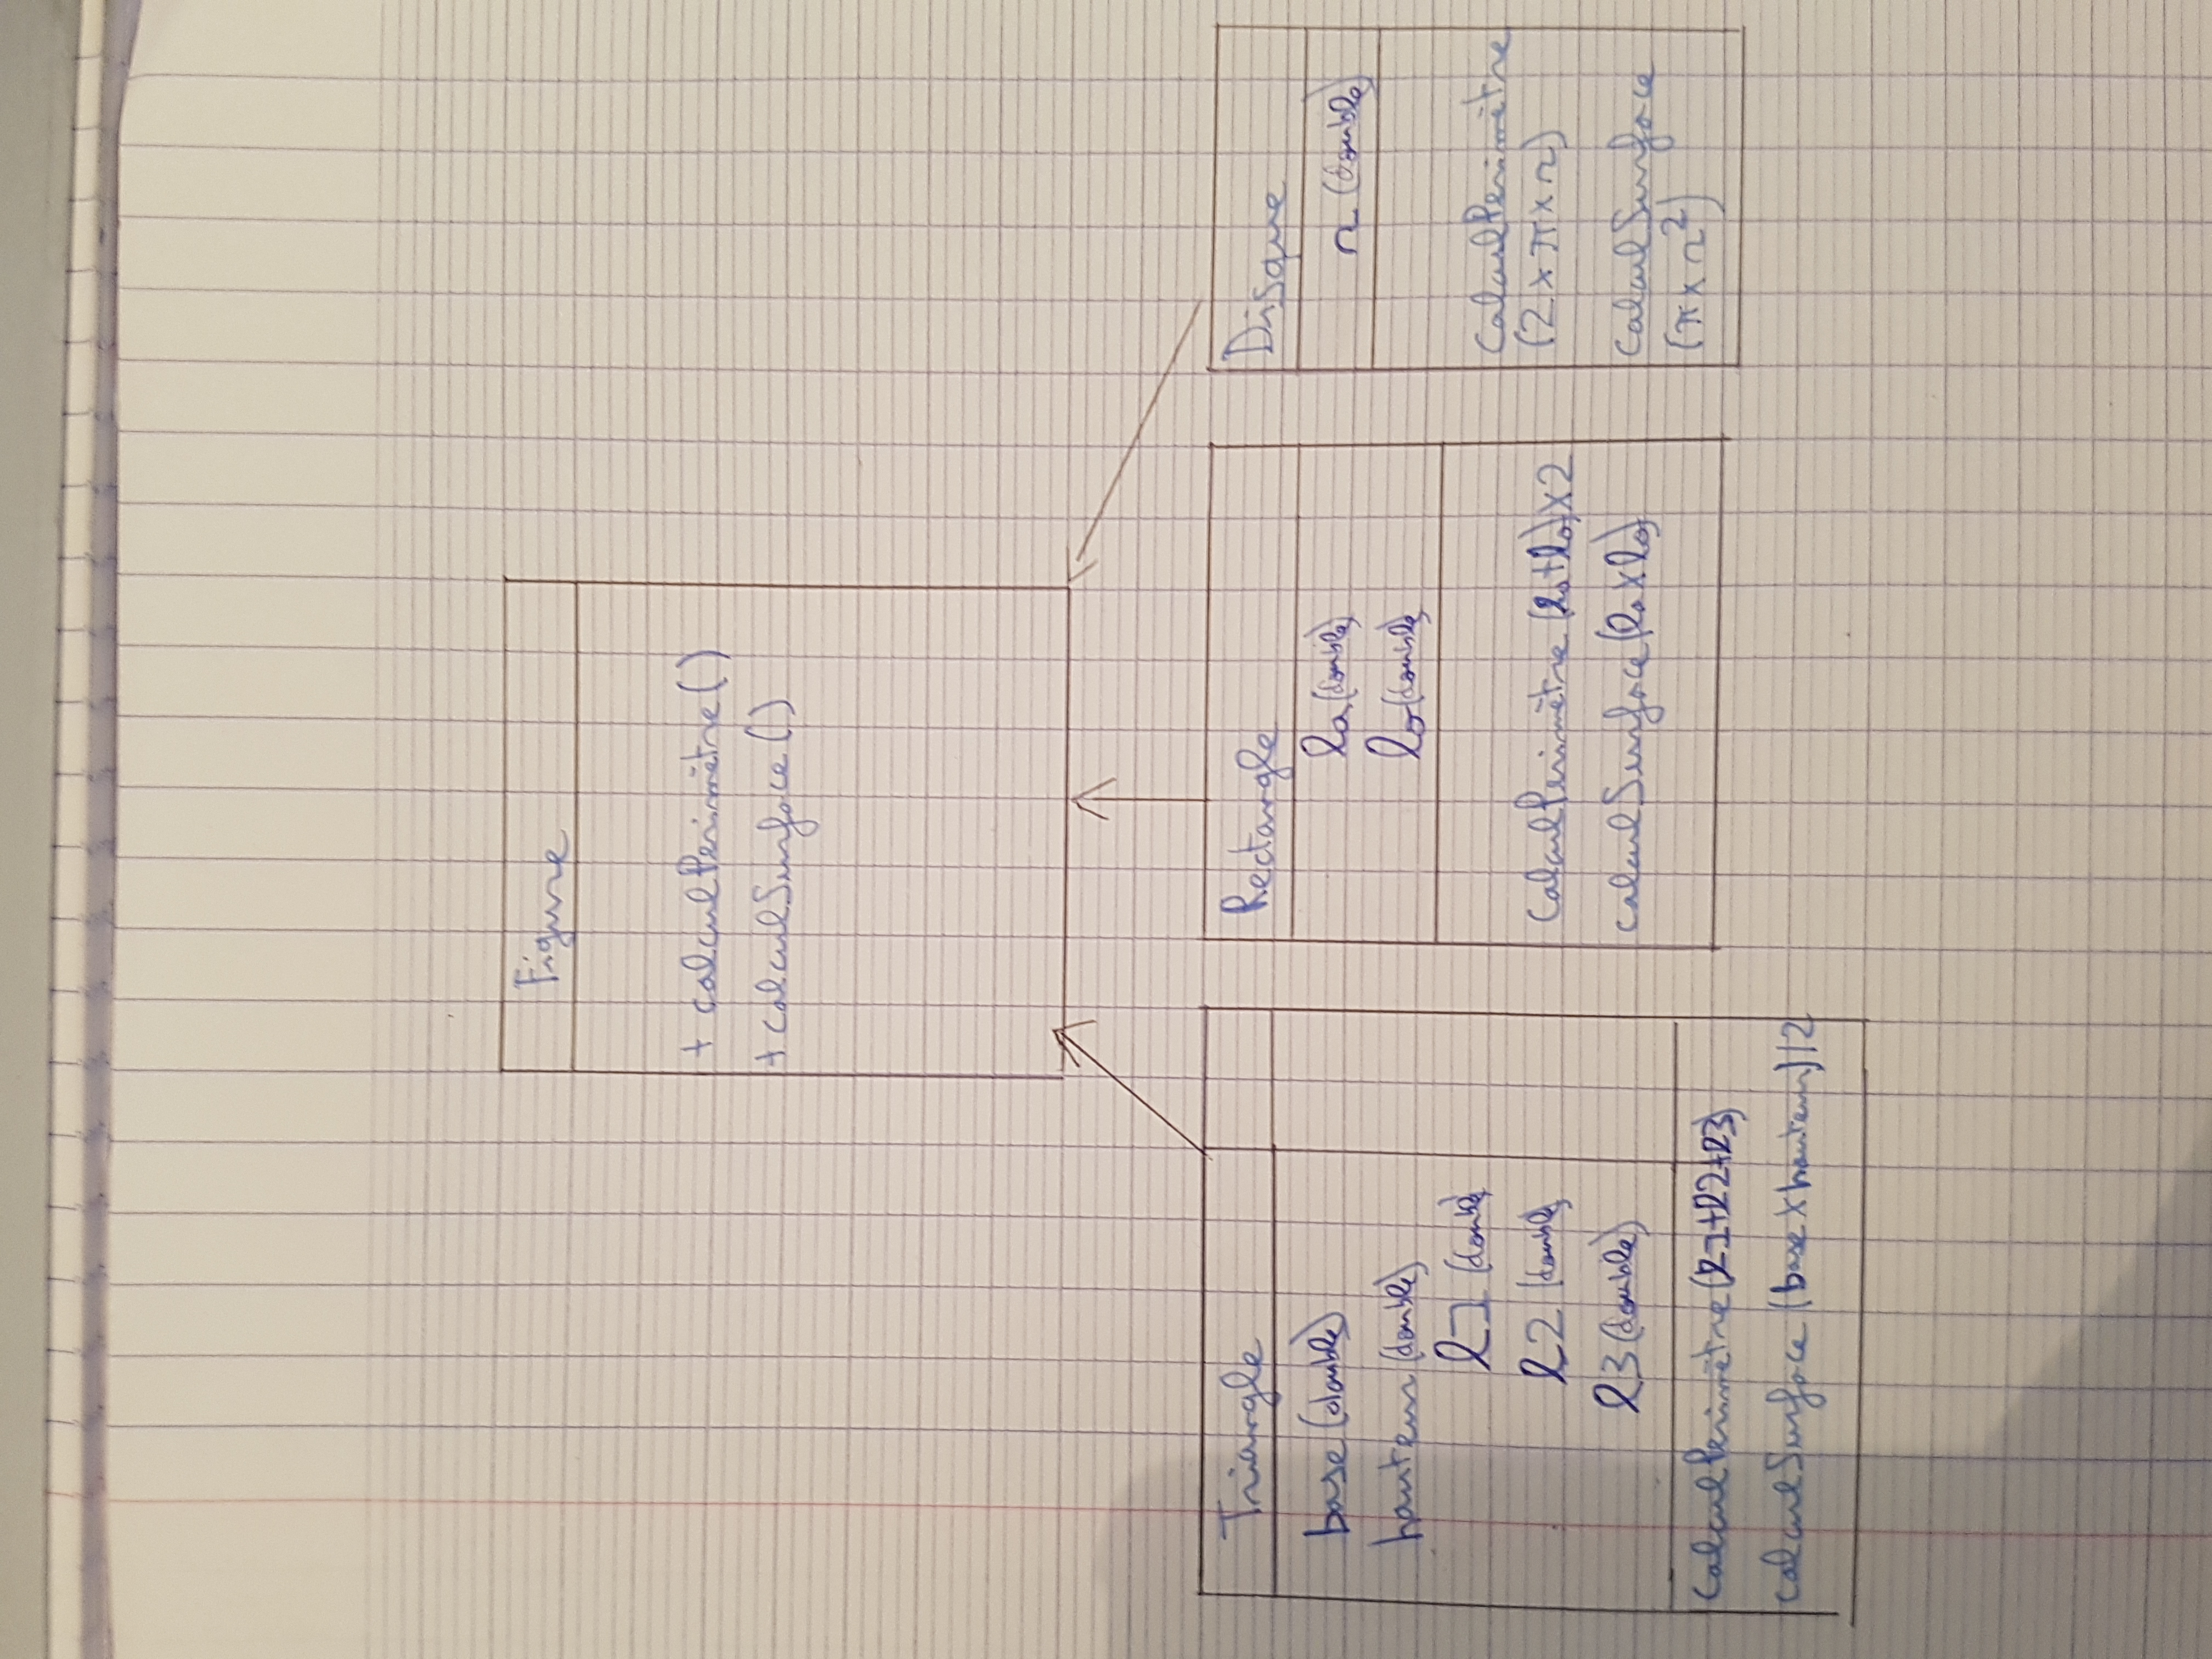 Figure
+ calculPerimètre()
+ calculSurface()
Triangle
base (double)
hauteur (double)
l1 (double)
l2 (double)
l3 (double)
calculPerimètre (l1+l2+l3)
calculSurface (base x hauteur)/2
Rectangle
la (double)
lo (double)
calculPerimètre (la+lo)x2
calculSurface (la x lo)
Disque
r (double)
calculPerimètre
(2 x π x r)
calculSurface
(π x r²)